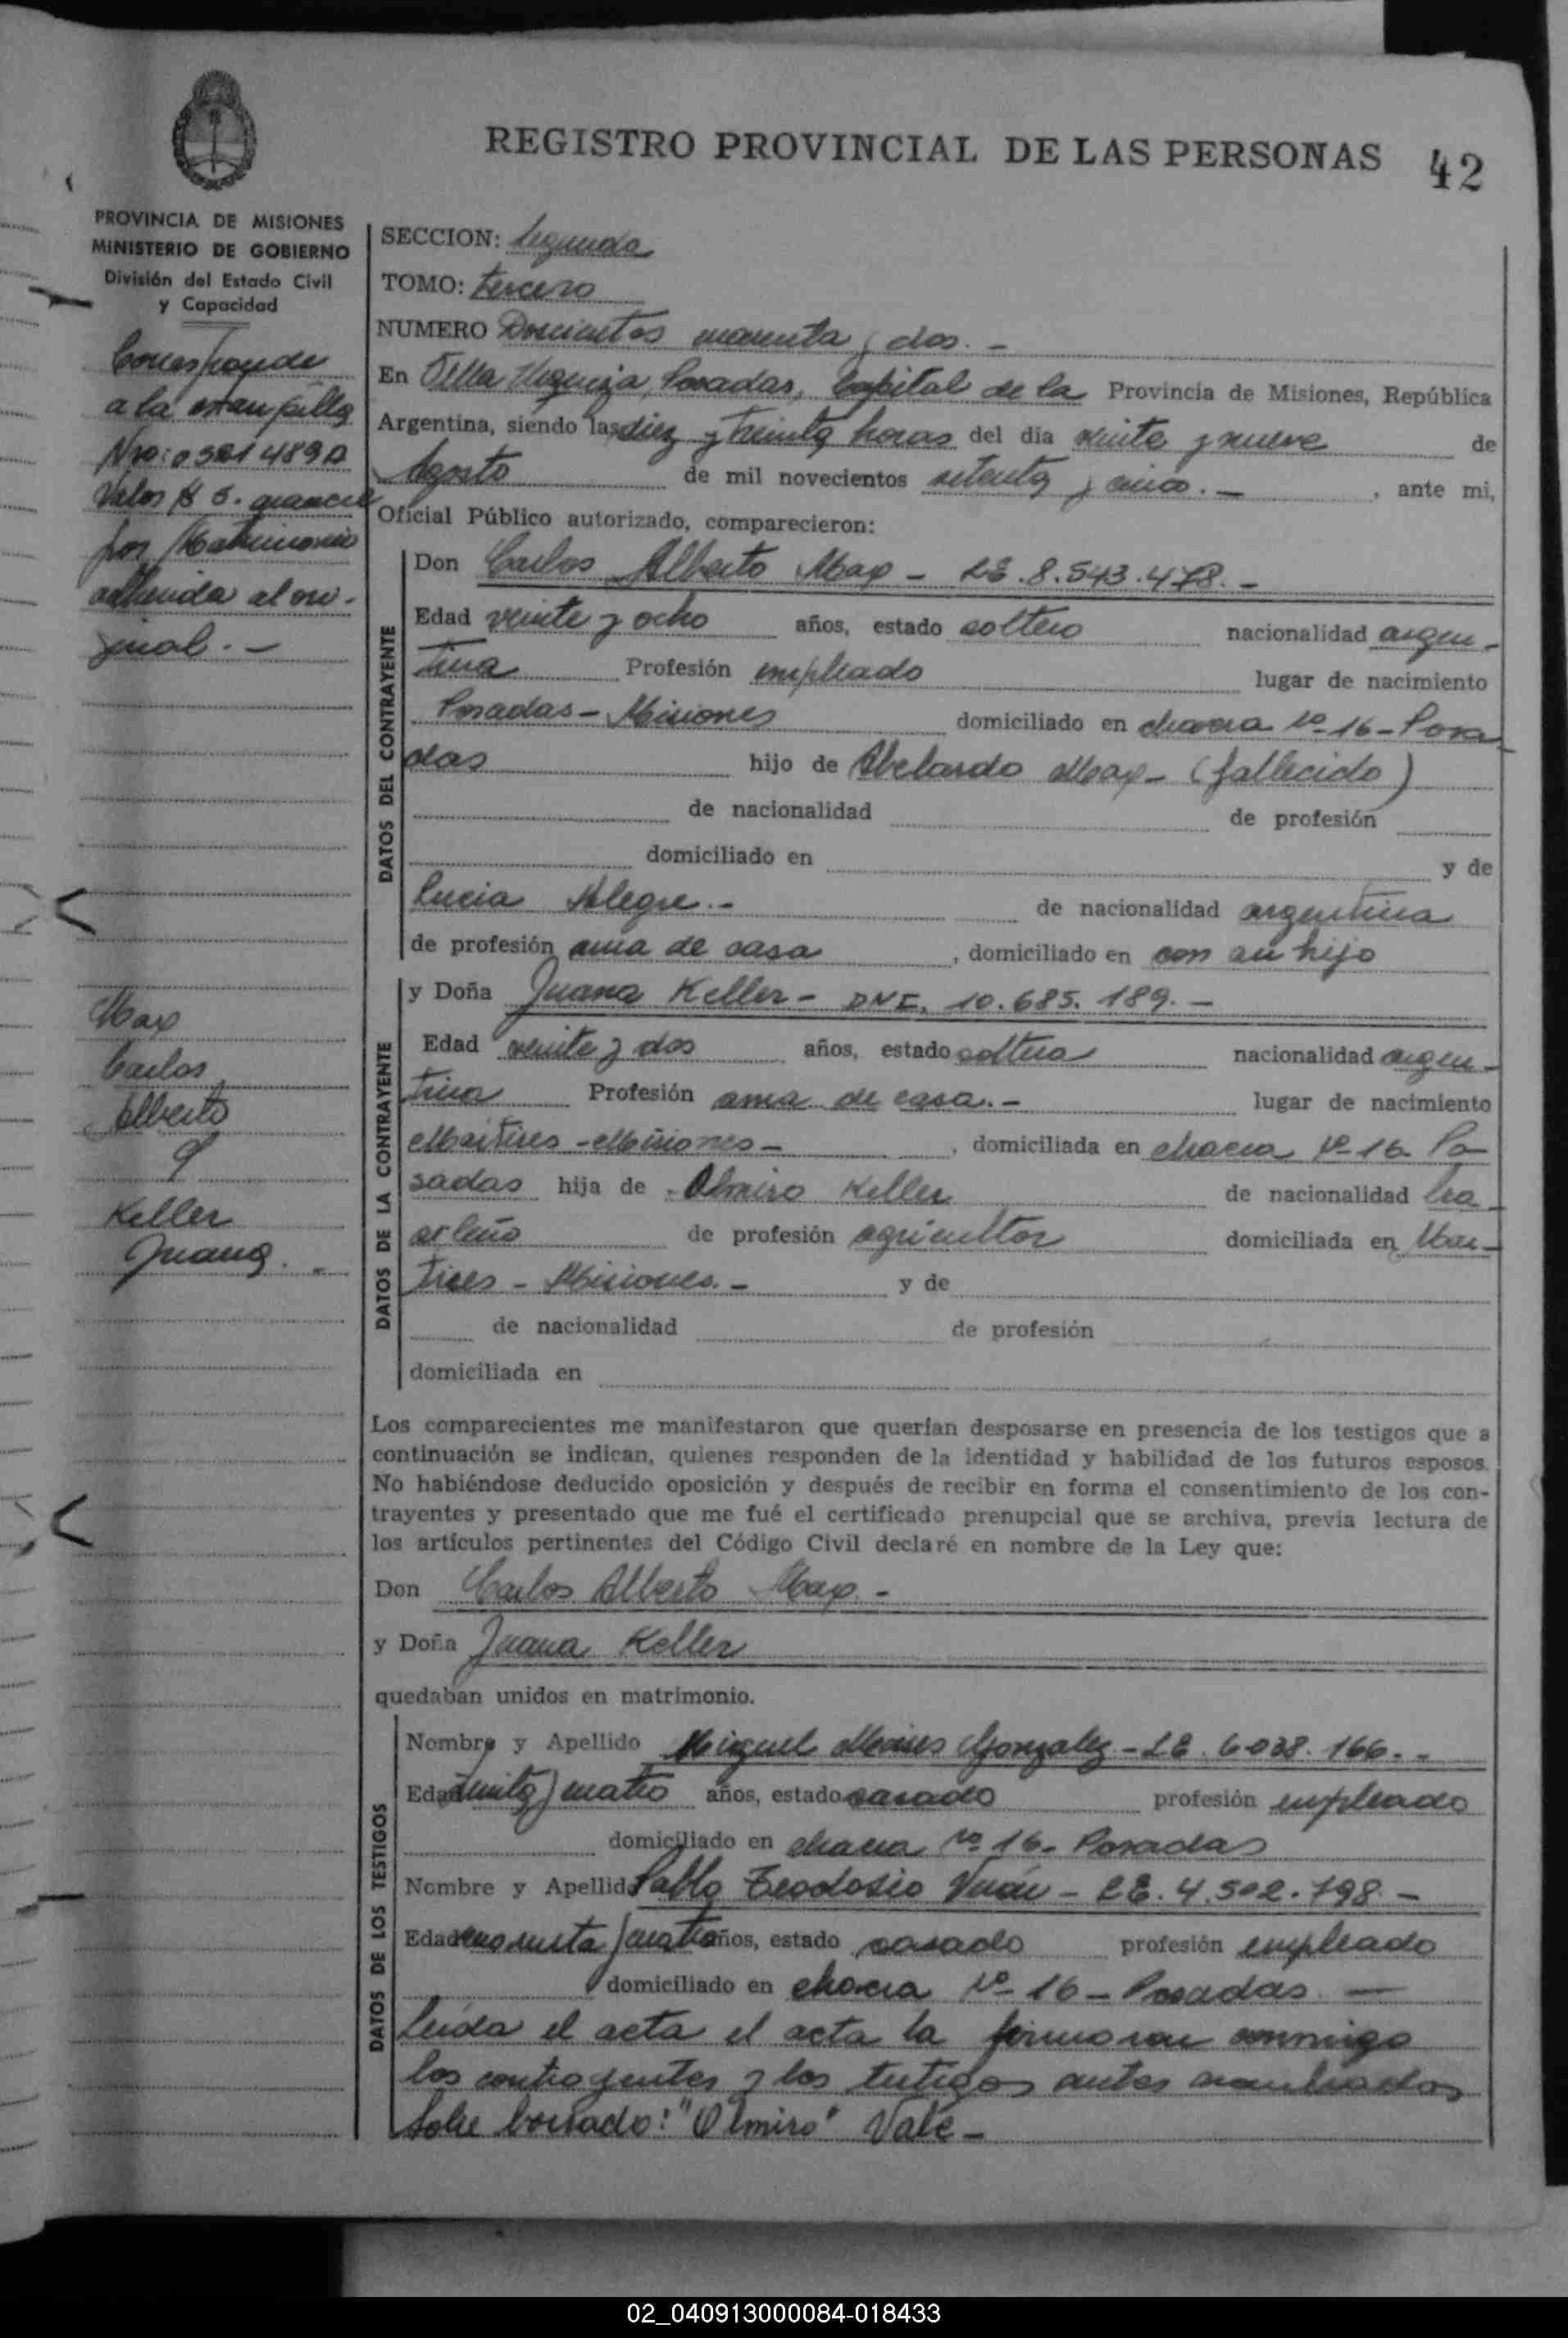 REGISTRO PROVINCIAL DE LAS PERSONAS 42
PROVINCIA DE MISIONES
MINISTERIO DE GOBIERNO
División del Estado Civil
y Capacidad
Corresponde
a la estampilla
Nro: 05214890
Valor $ 5.
por Matrimonio
adherida al ori-
ginal. -
Max
Carlos
Alberto
Keller
Juana. -
SECCION: Segunda
TOMO: tercero
NUMERO Doscientos cuarenta y dos. -
En Villa Urquiza, Posadas, Capital de la Provincia de Misiones, República
Argentina, siendo las diez y treinta horas del día veinte y nueve de
Agosto de mil novecientos setenta y cinco. - , ante mi,
Oficial Público autorizado, comparecieron:
DATOS DEL CONTRAYENTE
Don Carlos Alberto Max - LE. 8.543.478. -
Edad veinte y ocho años, estado soltero nacionalidad argen-
tina Profesión empleado lugar de nacimiento
Posadas - Misiones domiciliado en chacra No 16 - Posa-
das hijo de Abelardo Max - (fallecido)
de nacionalidad de profesión
domiciliado en y de
Lucia Alegre. - de nacionalidad argentina
de profesión ama de casa , domiciliado en con su hijo
DATOS DE LA CONTRAYENTE
y Doña Juana Keller - DNI. 10.685.189. -
Edad veinte y dos años, estado soltera nacionalidad argen-
tina Profesión ama de casa. - lugar de nacimiento
Martires - Misiones - , domiciliada en chacra No 16 Po-
sadas hija de Olmiro Keller de nacionalidad bra-
sileño de profesión agricultor domiciliada en Mar-
tires - Misiones. - y de
de nacionalidad de profesión
domiciliada en
Los comparecientes me manifestaron que querían desposarse en presencia de los testigos que a
continuación se indican, quienes responden de la identidad y habilidad de los futuros esposos.
No habiéndose deducido oposición y después de recibir en forma el consentimiento de los con-
trayentes y presentado que me fué el certificado prenupcial que se archiva, previa lectura de
los artículos pertinentes del Código Civil declaré en nombre de la Ley que:
Don Carlos Alberto Max. -
y Doña Juana Keller
quedaban unidos en matrimonio.
DATOS DE LOS TESTIGOS
Nombre y Apellido Miguel Moises Gonzalez - LE. 6.038.166. -
Edad treinta y cuatro años, estado casado profesión empleado
domiciliado en chacra No 16 - Posadas
Nombre y Apellido Pablo Teodosio - LE. 4.502.798. -
Edad cuarenta y cuatro años, estado casado profesión empleado
domiciliado en chacra No 16 - Posadas. -
Leída el acta el acta la firmaron conmigo
los contrayentes y los testigos antes nombrados
Sobre borrado: "Olmiro" Vale -
02_040913000084-018433